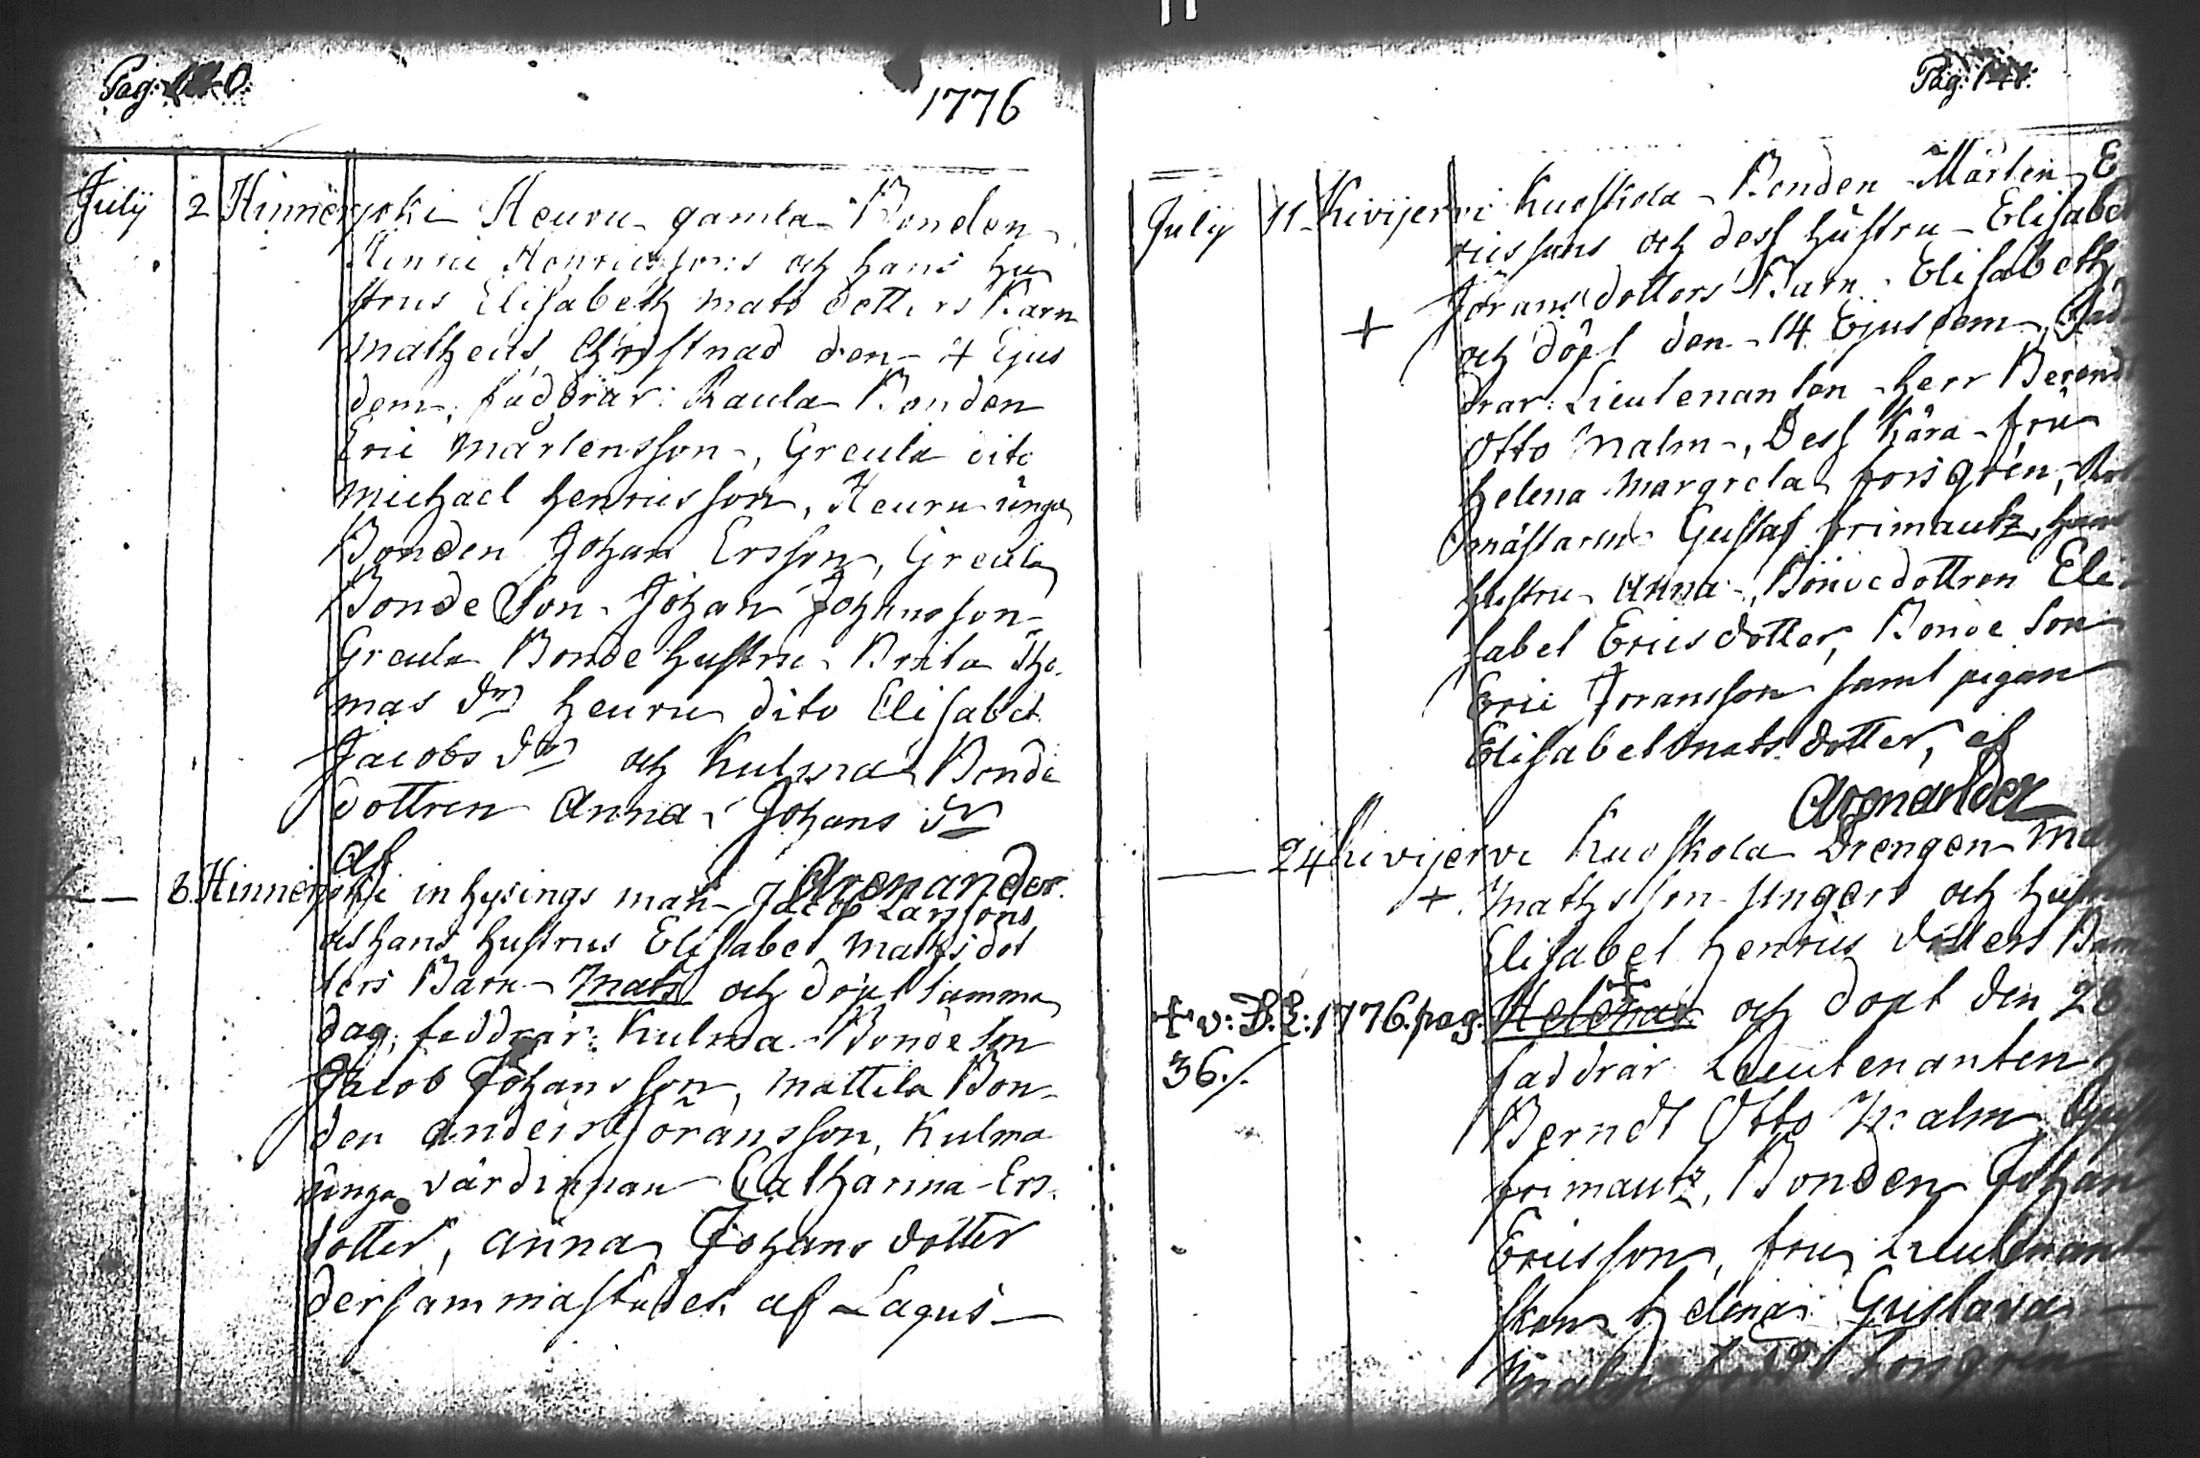 Pag: 140.
1776
July 2 Hinnerjoki Heuru gamla Bonden
Hinric Henricssons och hans hu
strus Elisabeth mats dotters Barn
Matheus, Christnad den 4 Ejus
dem, faddrar: Raula Bonden
Eric Mårtensson, Greula dito
Michael Henricsson, Heuru unga
Bonden Johan Ersson, Greula
Bonde Son Johan Johansson
Greula Bonde hustru Brita Tho
mas dr Heuru dito Elisabet
Jacobs dr och Kulma Bonde
dottren Anna Johans dr
af Arenander.
8 Hinnerjoki inhysings man Jacob Larssons
och hans hustrus Elisabet Maths dot
ters Barn Mats och döpt samma
dag, faddrar: Kulma Bonde son
Jacob Johansson, Mattila Bon
den Anders Jöransson, Kulma
unga värdinnan Catharina Ers
dotter, Anna Johans dotter
dersammastädes. af Lagus
Pag: 141.
July 11 Kivijervi Kuoskola Bonden Mårten E
ricssons och dess hustru Elisabet
Jörans dotters Barn Elisabeth,
+ och döpt den 14 Ejusdem, Fad
drar: Lieutenanten herr Berend
Otto Malm, Dess Kära fru
Helena Margreta Forsgren,
mästaren Gustaf Frimautz, hans
hustru Anna, Bonde dottren Eli
sabet Erics dotter, Bonde Son
Eric Joransson samt pigan
Elisabet Mats dotter, af
Arenander
24 Kivijervi Kuoskola Drengen
+ Mathsson Ungers och hustru
Elisabet Henrics dotters Barn
+ v: D.L: 1776. pag. Helena + och döpt den 28
36./.
faddrar Lieutenanten
Berndt Otto Malm,
Frimautz, Bonden Johan
Ericsson, fru Lieutenant
skan Helena Gustava
Malm född Forsgren